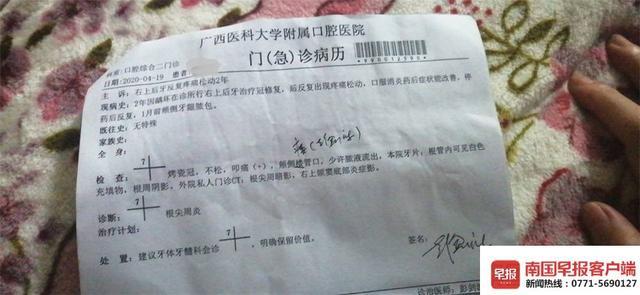 广西医科大学附属口腔医院
门(急)诊病历
科室:口腔综合二门诊
日期:2020-04-19 患者
主 诉:右上后牙反复疼痛松动2年
现病史:2年因龋坏在诊所行右上后牙治疗冠修复,后反复出现疼痛松动、口服消炎药后症状能改善,停
药后反复,1月前颊侧牙龈脓包。
既往史:无特殊
家族史:
全 身:
检 查:7 烤瓷冠,不松,叩痛(+),颊侧 管口,少许脓液流出,本院牙片:根管内可见白色
充填物,根周阴影,外院私人门诊CT:根尖周暗影,右上颌窦底部炎症影。
诊断:7 根尖周炎
治疗计划:
处 置:建议牙体牙髓科会诊7,明确保留价值。
签名:
诊治医师:彭剑
早报 南国早报客户端
新闻热线:0771-5690127